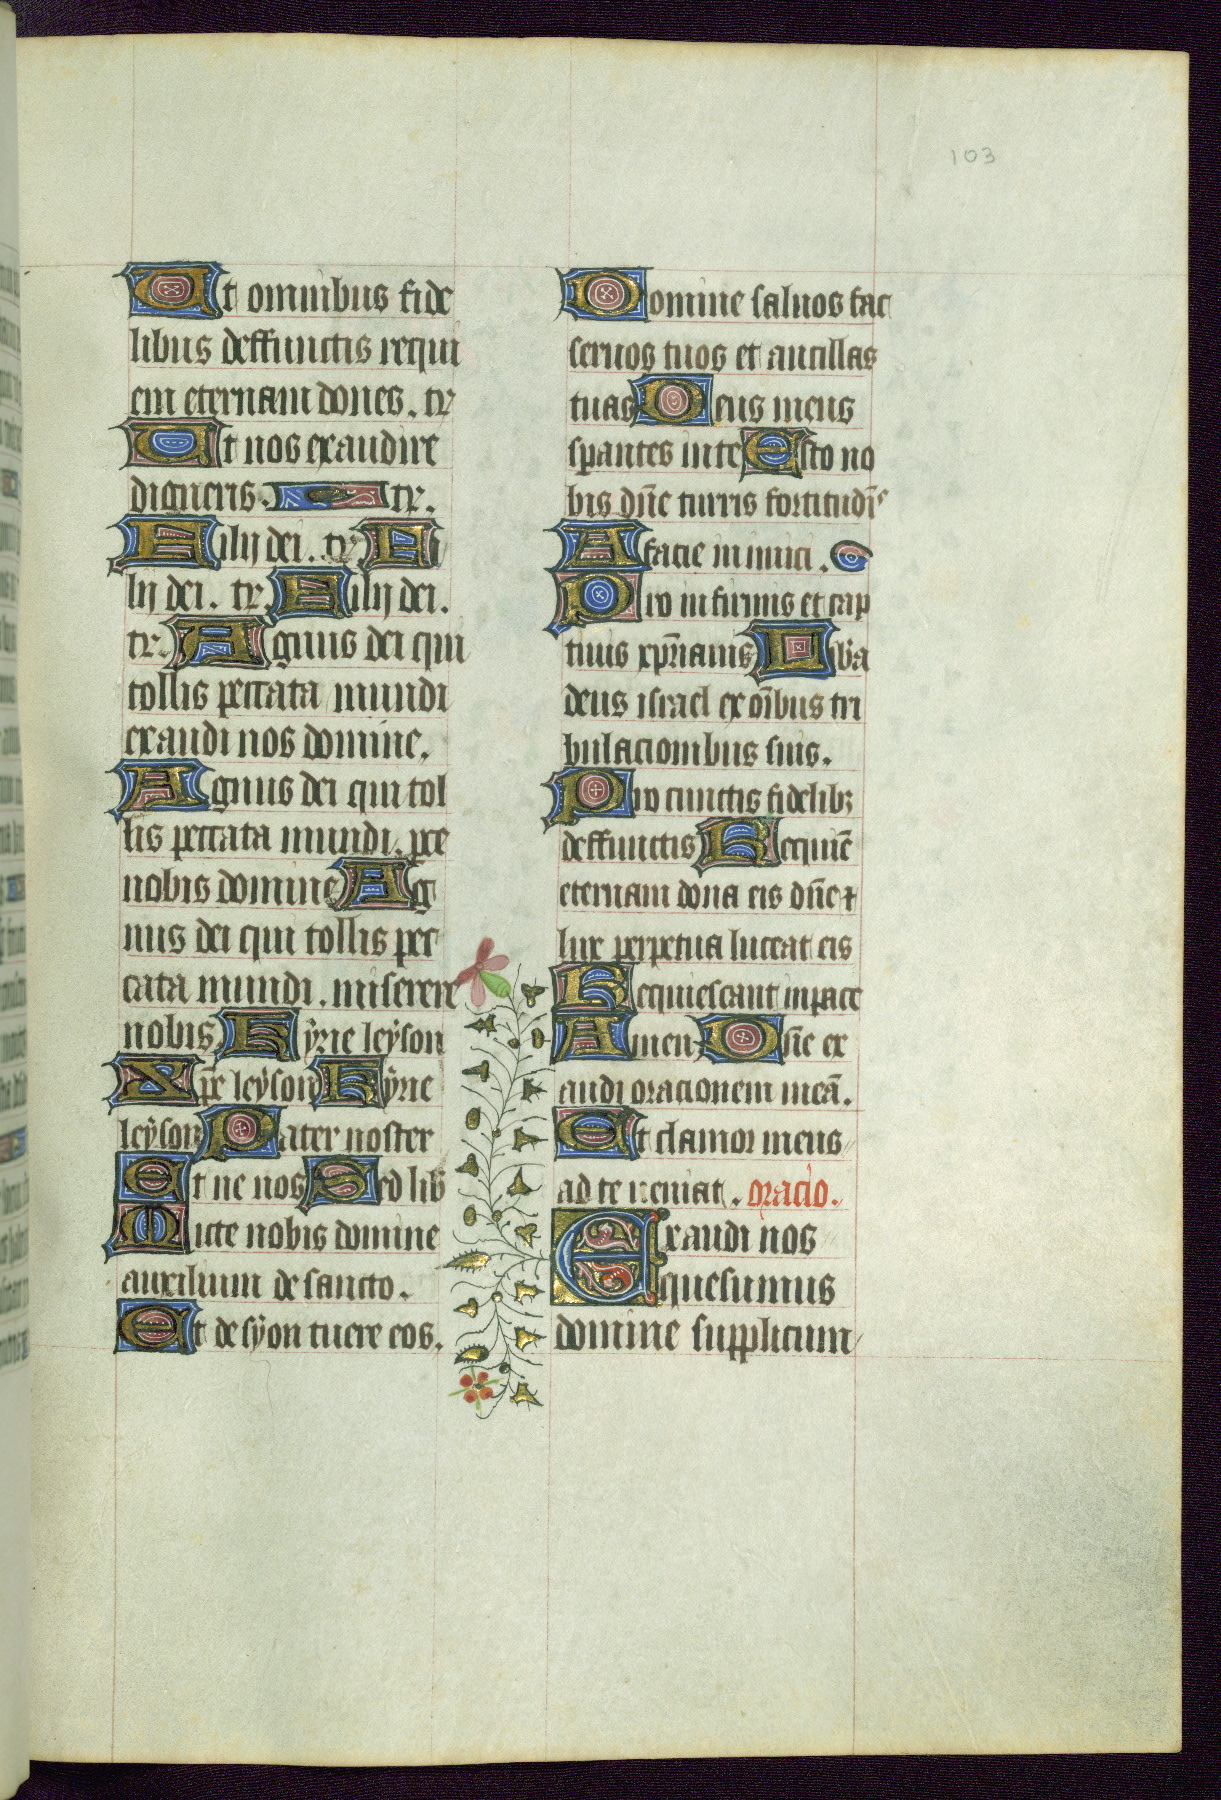 103
Ut omnibus fide
libus deffunctis requi
em eternam dones. tr
Ut nos exaudire
digneris. tr.
Filij dei. tr Fi
lij dei. tr. Filij dei.
tr. Agnus dei qui
tollis peccata mundi
exaudi nos domine.
Agnus dei qui tol
lis peccata mundi. pce
nobis domine Ag
nus dei qui tollis pec
cata mundi. miserere
nobis. Kyrie leyson
Xpē leyson Kyrie
leyson Pater noster
Et ne nos Sed lib
Micte nobis domine
auxilium de sancto.
Et de syon tuere eos.
Domine saluos fac
seruos tuos et ancillas
tuas Deus meus
sperantes in te Esto no
bis dn̄e turris fortitudīs
A facie inimici.
Pro infirmis et cap
tiuis xp̄rianis Libera
deus israel ex oībus tri
bulacionibus suis.
Pro cunctis fidelibꝫ
deffunctis Requiē
eternam dona eis dn̄e ⁊
lux perpetua luceat eis
Requiescant in pace
Amen Dn̄e ex
audi oracionem meā.
Et clamor meus
ad te ueniat. oracio.
Exaudi nos
quesumus
domine supplicum